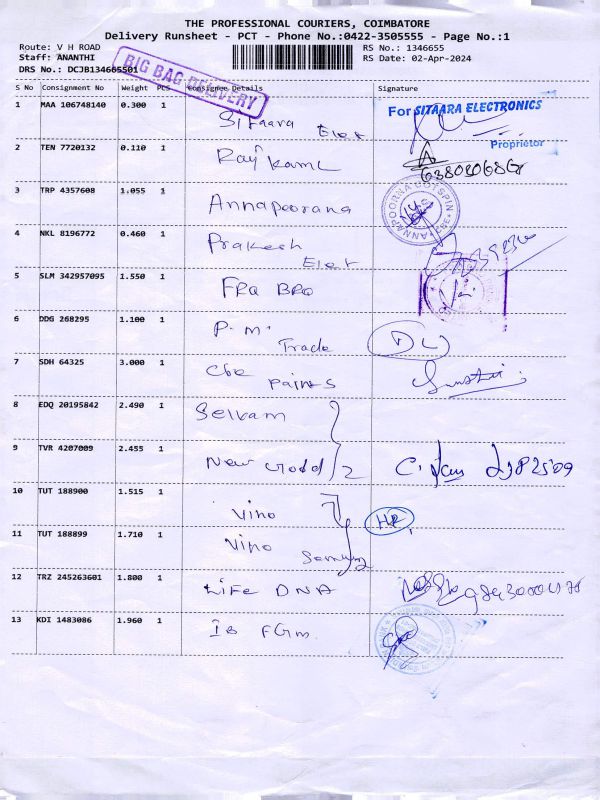 THE PROFESSIONAL COURIERS, COIMBATORE
Delivery Runsheet - PCT - Phone No.:0422-3505555 - Page No.:1
Route: V H ROAD
RS No.: 1346655
Staff: ANANTHI
RS Date: 02-Apr-2024
DRS No.: DCJB134665501
BIG BAG DELIVERY
S No Consignment No Weight PCS Consignee Details Signature
1 MAA 106748140 0.300 1 Sitaara Elet
For SITAARA ELECTRONICS
Proprietor
2 TEN 7720132 0.110 1 Raj Kaml
3 TRP 4357608 1.055 1 Annapoorana
ANNAPOORNA COTSPIN
4 NKL 8196772 0.460 1 Prakash Elet
5 SLM 342957095 1.550 1 FRA BRO
6 DDG 268295 1.100 1 P. M. Trade DL
7 SDH 64325 3.000 1 Cbe Paints
8 EDQ 20195842 2.490 1 Selvam
9 TVR 4207009 2.455 1 New 2
10 TUT 188900 1.515 1 Vino
11 TUT 188899 1.710 1 Vino
12 TRZ 245263601 1.800 1 Life DNA
13 KDI 1483086 1.960 1 IB FGm